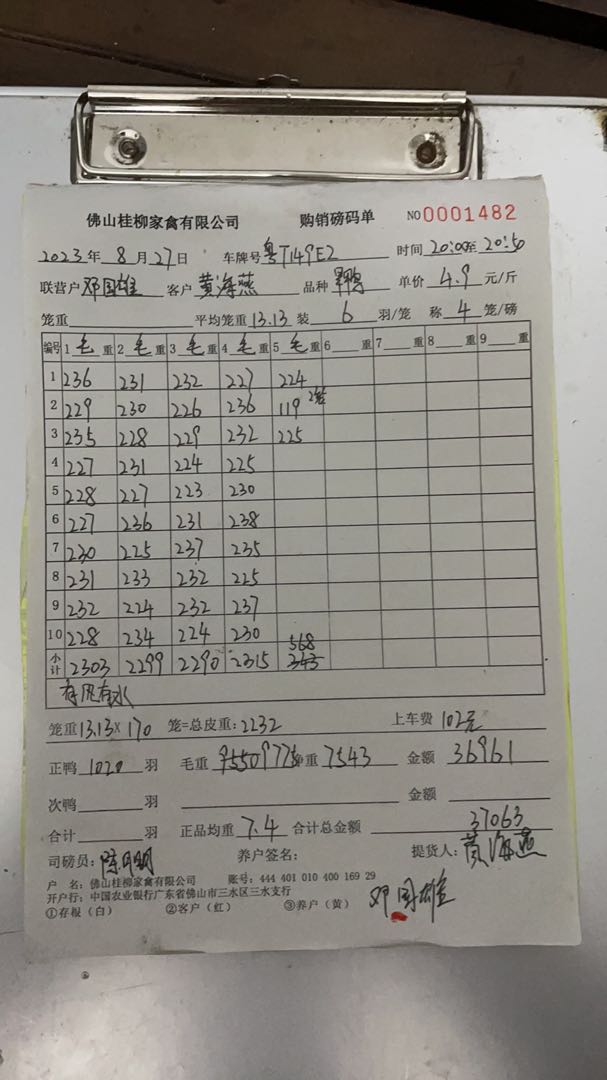 佛山桂柳家禽有限公司 购销磅码单 NO 0001482
2023年 8月27日 车牌号 粤T149E2 时间 20:00至20:50
联营户 邓国雄 客户 黄海燕 品种 鸭 单价 4.9 元/斤
笼重 平均笼重 13.13 装 6 羽/笼 称 4 笼/磅
编号 1 毛 重 2 毛 重 3 毛 重 4 毛 重 5 毛 重 6 重 7 重 8 重 9 重
1 236 231 232 227 224
2 229 230 226 236 119 2笼
3 235 228 229 232 225
4 227 231 224 225
5 228 227 223 230
6 227 236 231 238
7 230 225 237 235
8 231 233 232 225
9 232 224 232 237
10 228 234 224 230
568
小计 2303 2299 2290 2315 343
有风有水
笼重 13.13 × 170 笼=总皮重: 2232 上车费 102元
正鸭 1020 羽 毛重 9550 9775 净重 7543 金额 36961
次鸭 羽 金额
合计 羽 正品均重 7.4 合计总金额 37063
司磅员: 陈 明 养户签名: 提货人: 黄海燕
户 名: 佛山桂柳家禽有限公司 账号: 444 401 010 400 169 29
开户行: 中国农业银行广东省佛山市三水区三水支行
①存根（白） ②客户（红） ③养户（黄） 邓国雄